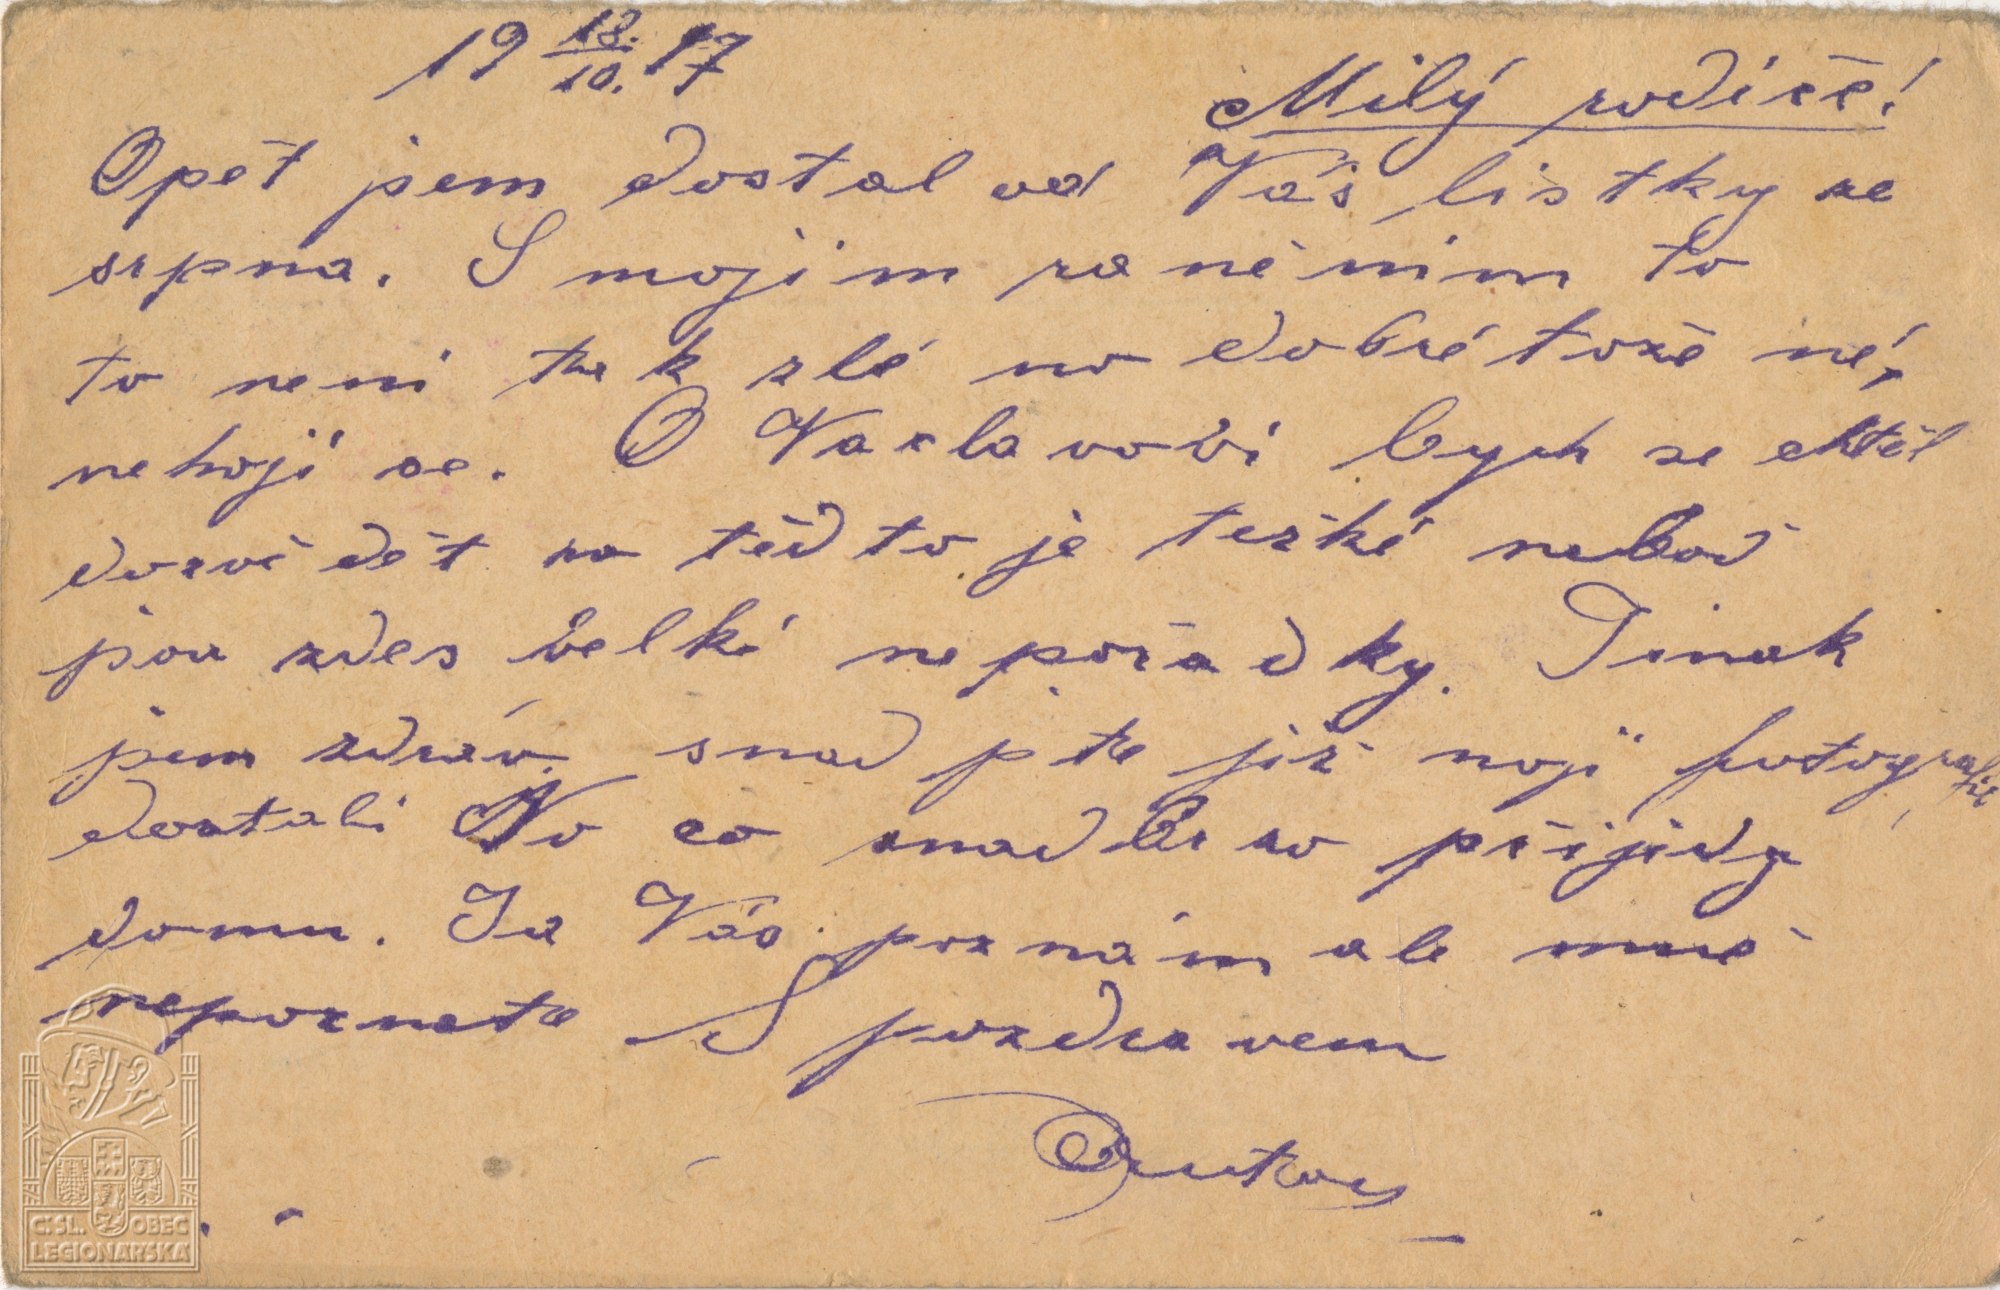 19 18./10. 17
Milý rodiče!
Opět jsem dostal od Vás listky ze
srpna. S mojim raněnim to
to neni tak zlé no dobré tože né,
nehojí se. O Vaclavovi bych se chtěl
dozvědět na těď to je težké neboď
jsou zdes velki nepořadky. Jinak
jsem zdráv. snad jste již moji fotografie
dostali No co snad brzo přijedu
domu. Ja Vás poznám ale mně
nepoznate S pozdravem
Č:SL. OBEC
LEGIONÁŘSKÁ